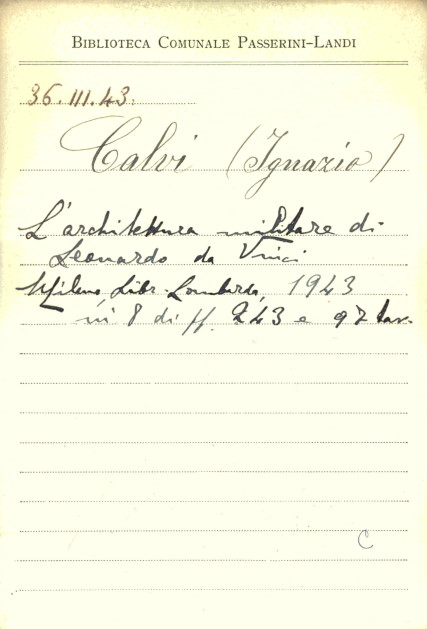 BIBLIOTECA COMUNALE PASSERINI-LANDI
36.III.43.
Calvi (Ignazio)
L'architettura militare di
Leonardo da Vinci
Milano, Libr. Lombarda, 1943
in 8 di ff. 243 e 97 tav.
C